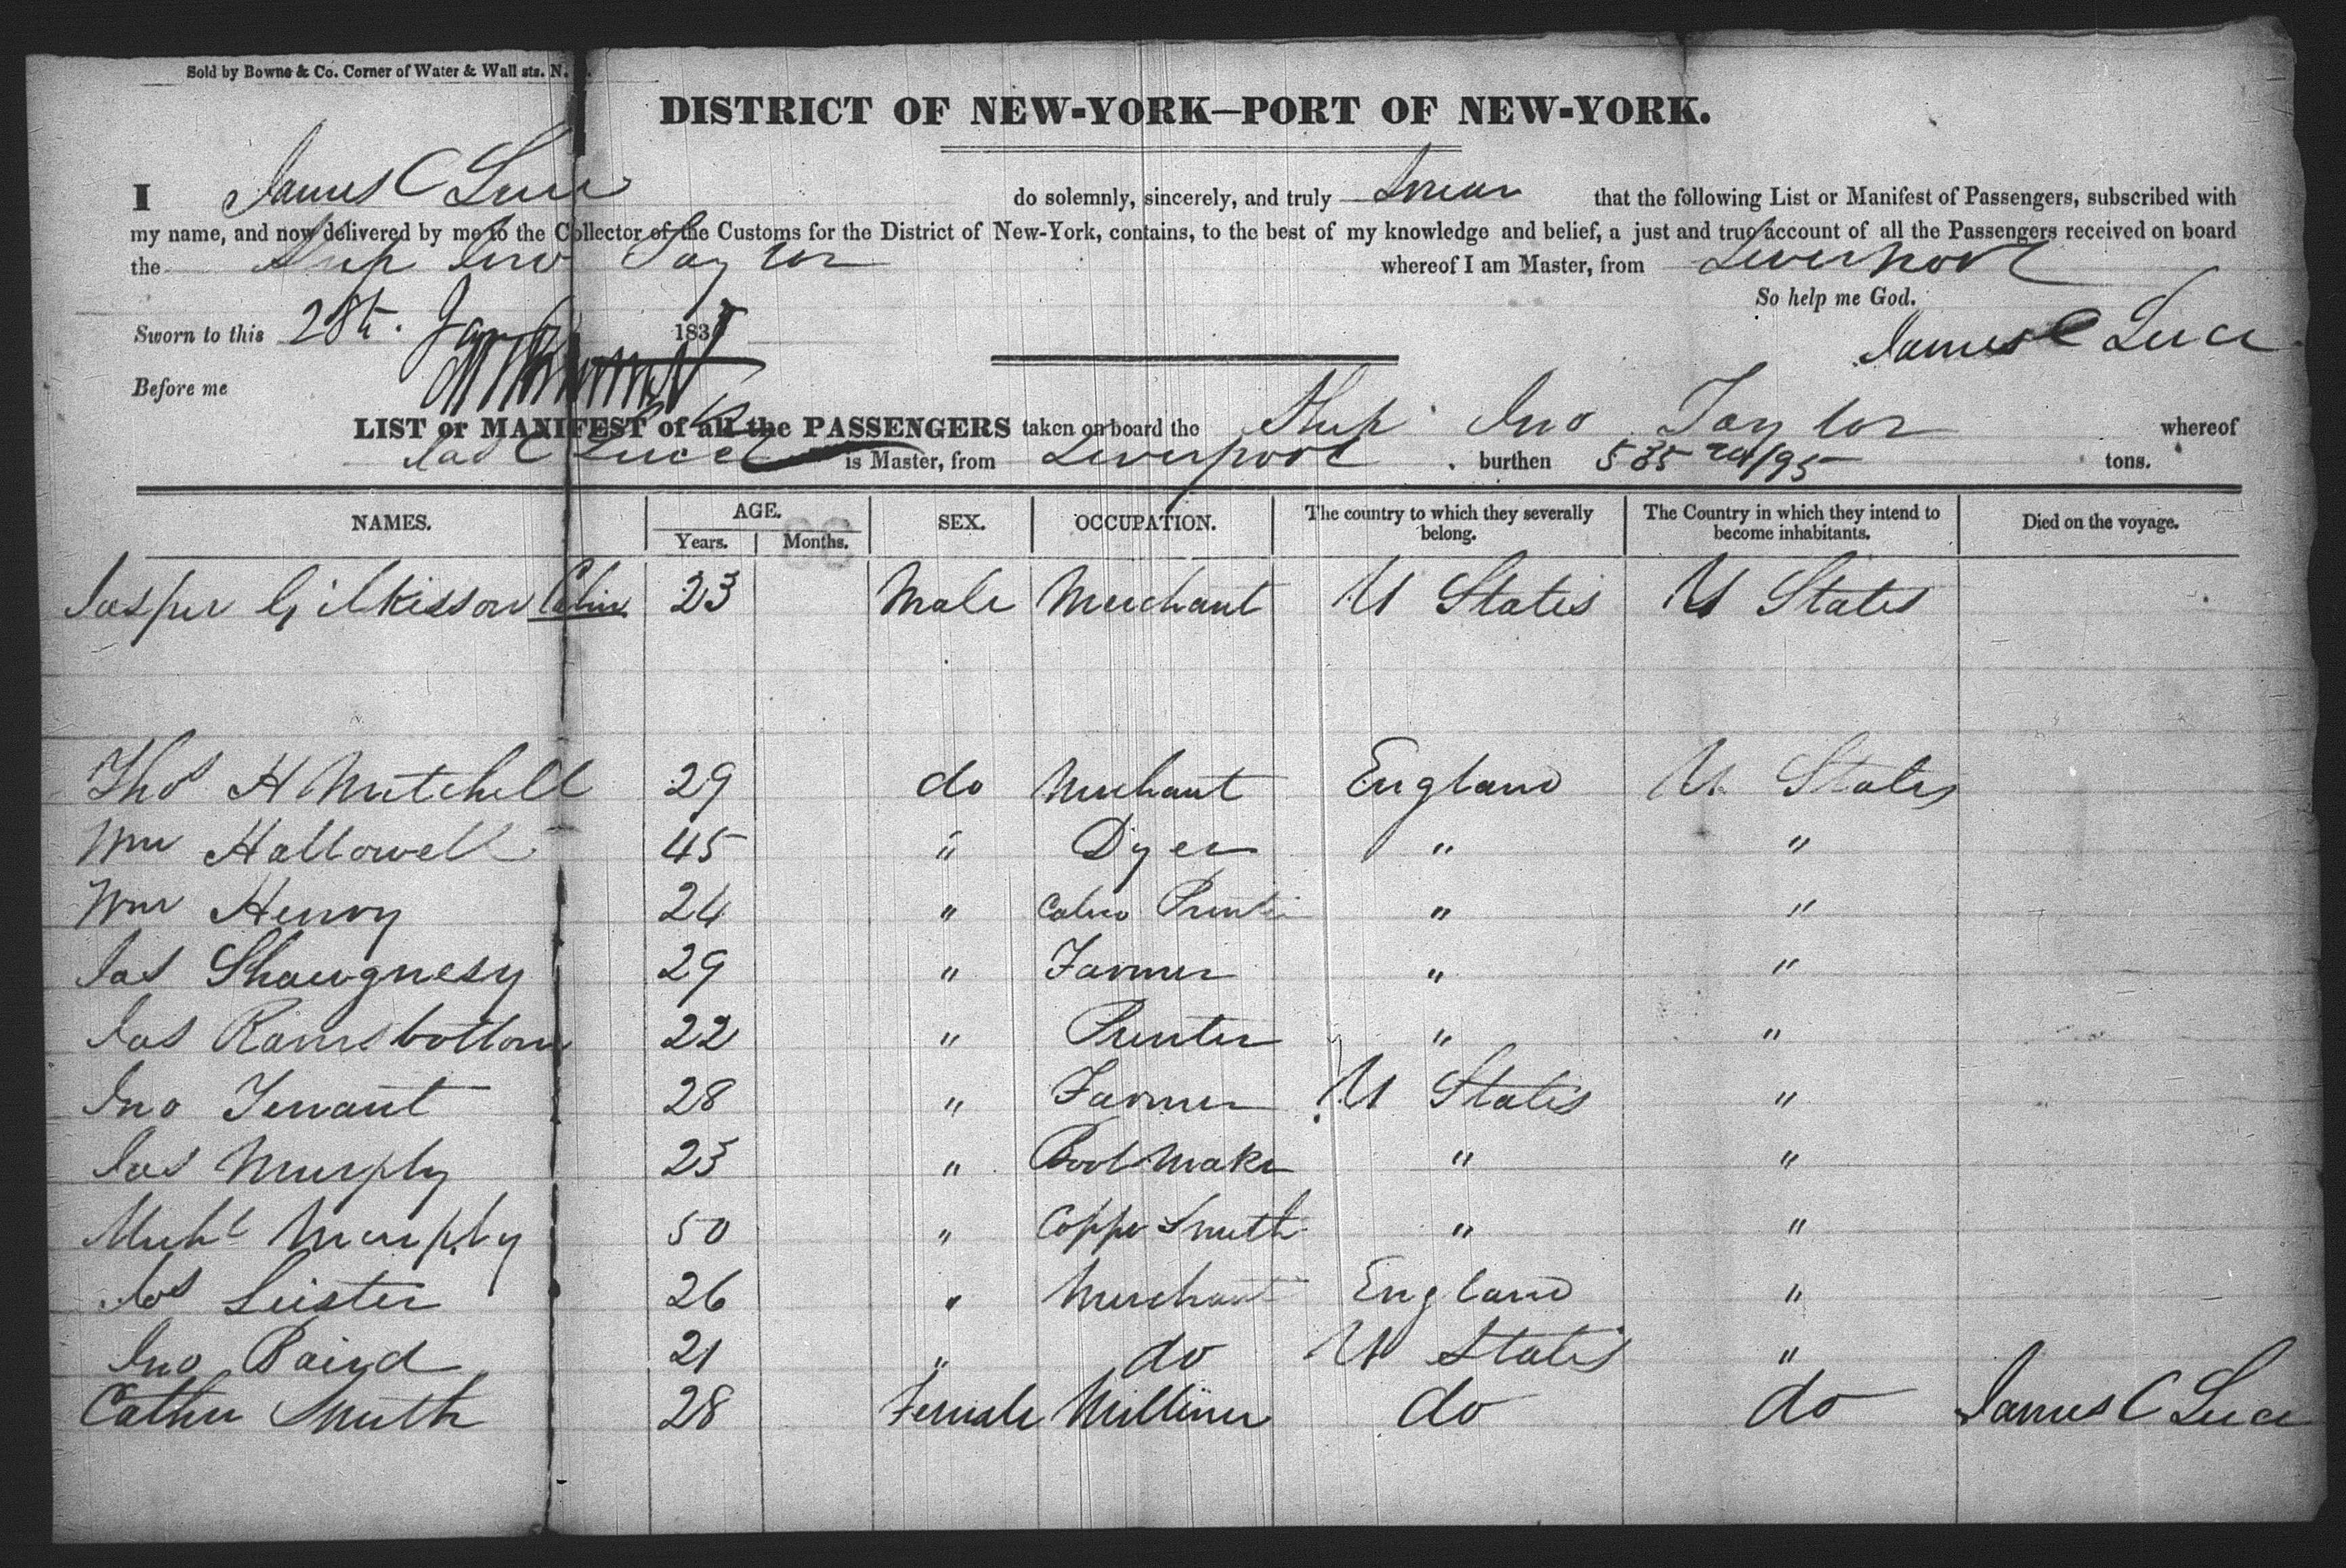 Sold by Bowne & Co. Corner of Water & Wall sts. N.
DISTRICT OF NEW-YORK—PORT OF NEW-YORK.
I James C Luce do solemnly, sincerely, and truly Swear that the following List or Manifest of Passengers, subscribed with
my name, and now delivered by me to the Collector of the Customs for the District of New-York, contains, to the best of my knowledge and belief, a just and true account of all the Passengers received on board
the Ship Jno Taylor whereof I am Master, from Liverpool
So help me God.
Sworn to this 28th. Jany 183
James C Luce
Before me
LIST or MANIFEST of all the PASSENGERS taken on board the Ship Jno Taylor whereof
Jas C Luce is Master, from Liverpool burthen 535 /95 tons.
NAMES. AGE. SEX. OCCUPATION. The country to which they severally belong. The Country in which they intend to become inhabitants. Died on the voyage.
Years. Months.
Jasper Gilkisson Cabin 23 Male Merchant U States U States
Thos H Mitchell 29 do Merchant England U States
Wm Hallowell 45 " Dyer " "
Wm Henry 24 " Calico Printer " "
Jas Shaugnesy 29 " Farmer " "
Jas Ramsbottom 22 " Printer " "
Jno Tenant 28 " Farmer U States "
Jas Murphy 23 " Boot Maker " "
Michl Murphy 50 " Copper Smith " "
Jos Leister 26 " Merchant England "
Jno Baird 21 " do U States "
Cathe Smith 28 Female Milliner do do James C Luce